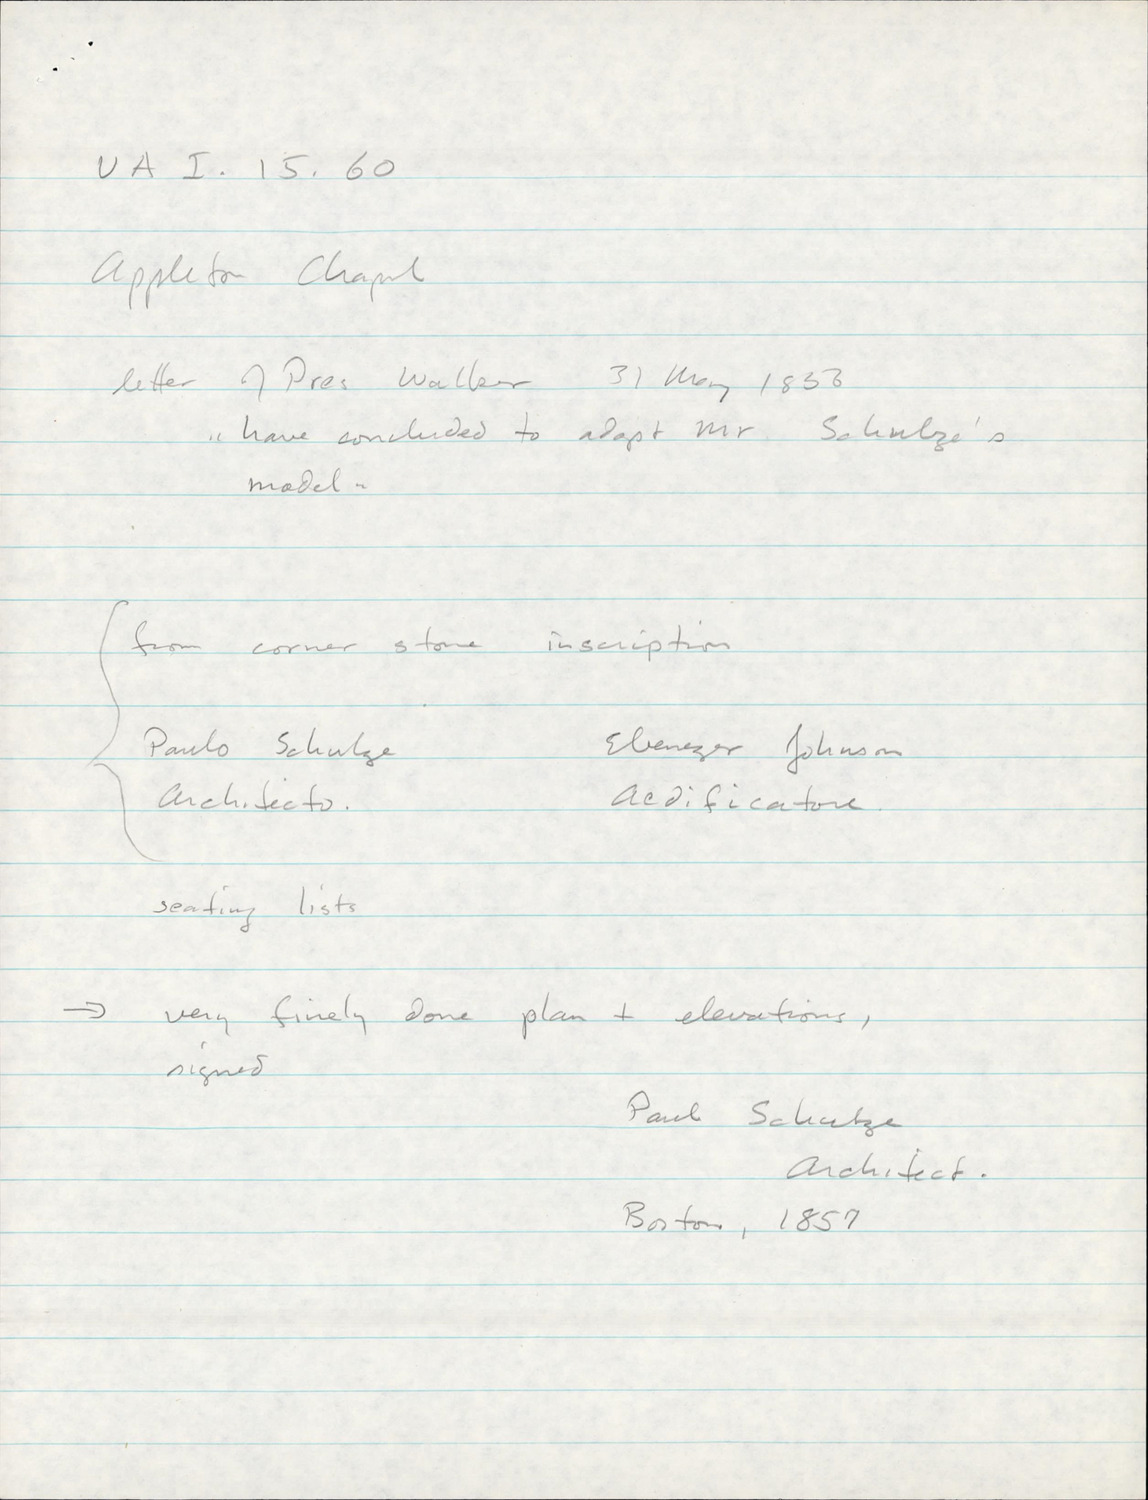 UA I. 15. 60
Appleton Chapel
letter of Pres Walker 31 May 1853
"have concluded to adopt Mr Schulze's
model"
from corner stone inscription
Paulo Schulze Ebenezer Johnson
Architecto. Aedificatore.
seating lists
→ very finely done plan + elevations,
signed
Paul Schulze
Architect.
Boston, 1857